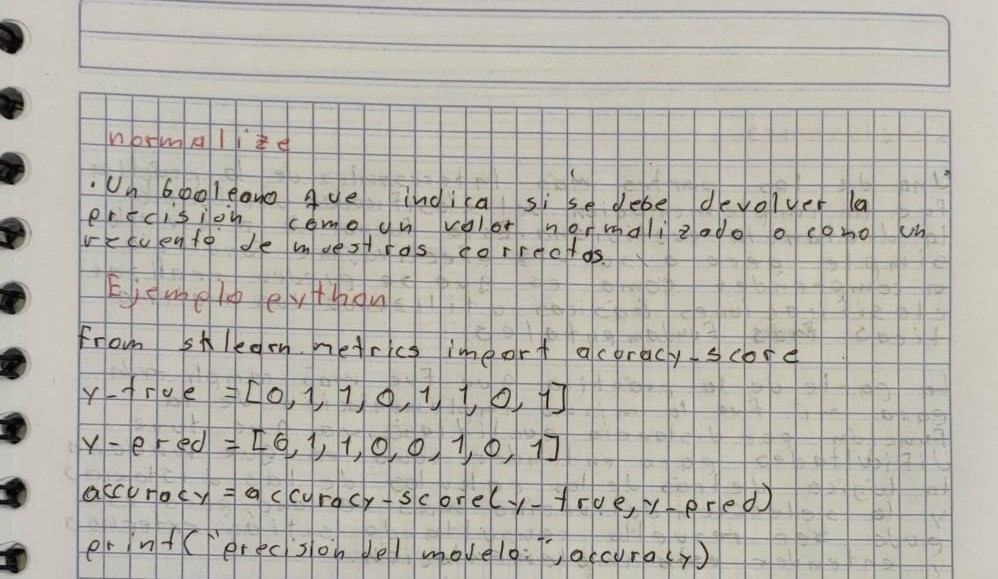 normalize
. Un booleano que indica si se debe devolver la
precision como un valor normalizado o como un
recuento de muestras correctas.
Ejemplo python
From sklearn.metrics import acuracy-score
y-true = [0,1,1,0,1,1,0,1]
y-pred = [0,1,1,0,0,1,0,1]
accuracy = accuracy-score(y-true,y-pred)
print("precision del modelo:",accuracy)